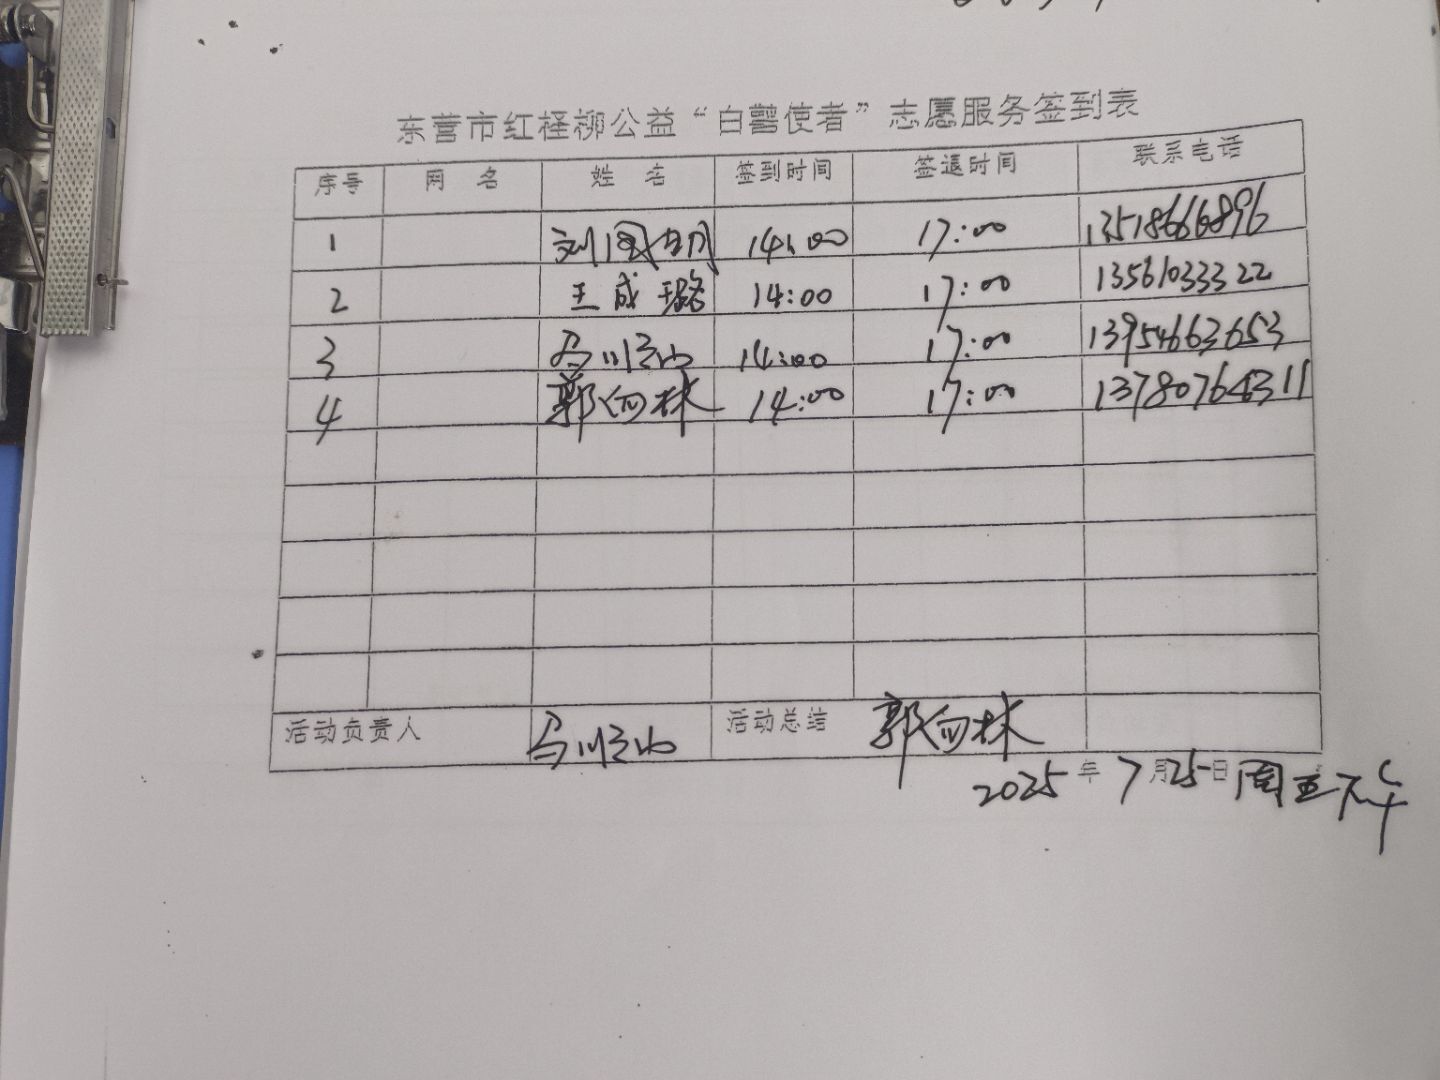 东营市红柽柳公益“白鹭使者”志愿服务签到表
序号 网 名 姓 名 签到时间 签退时间 联系电话
1 刘国明 14:00 17:00 13518666896
2 王成璐 14:00 17:00 13561033322
3 马川 14:00 17:00 13954663653
4 郭向林 14:00 17:00 13780764311
活动负责人 马川 活动总结 郭向林
2025年7月25日周五下午